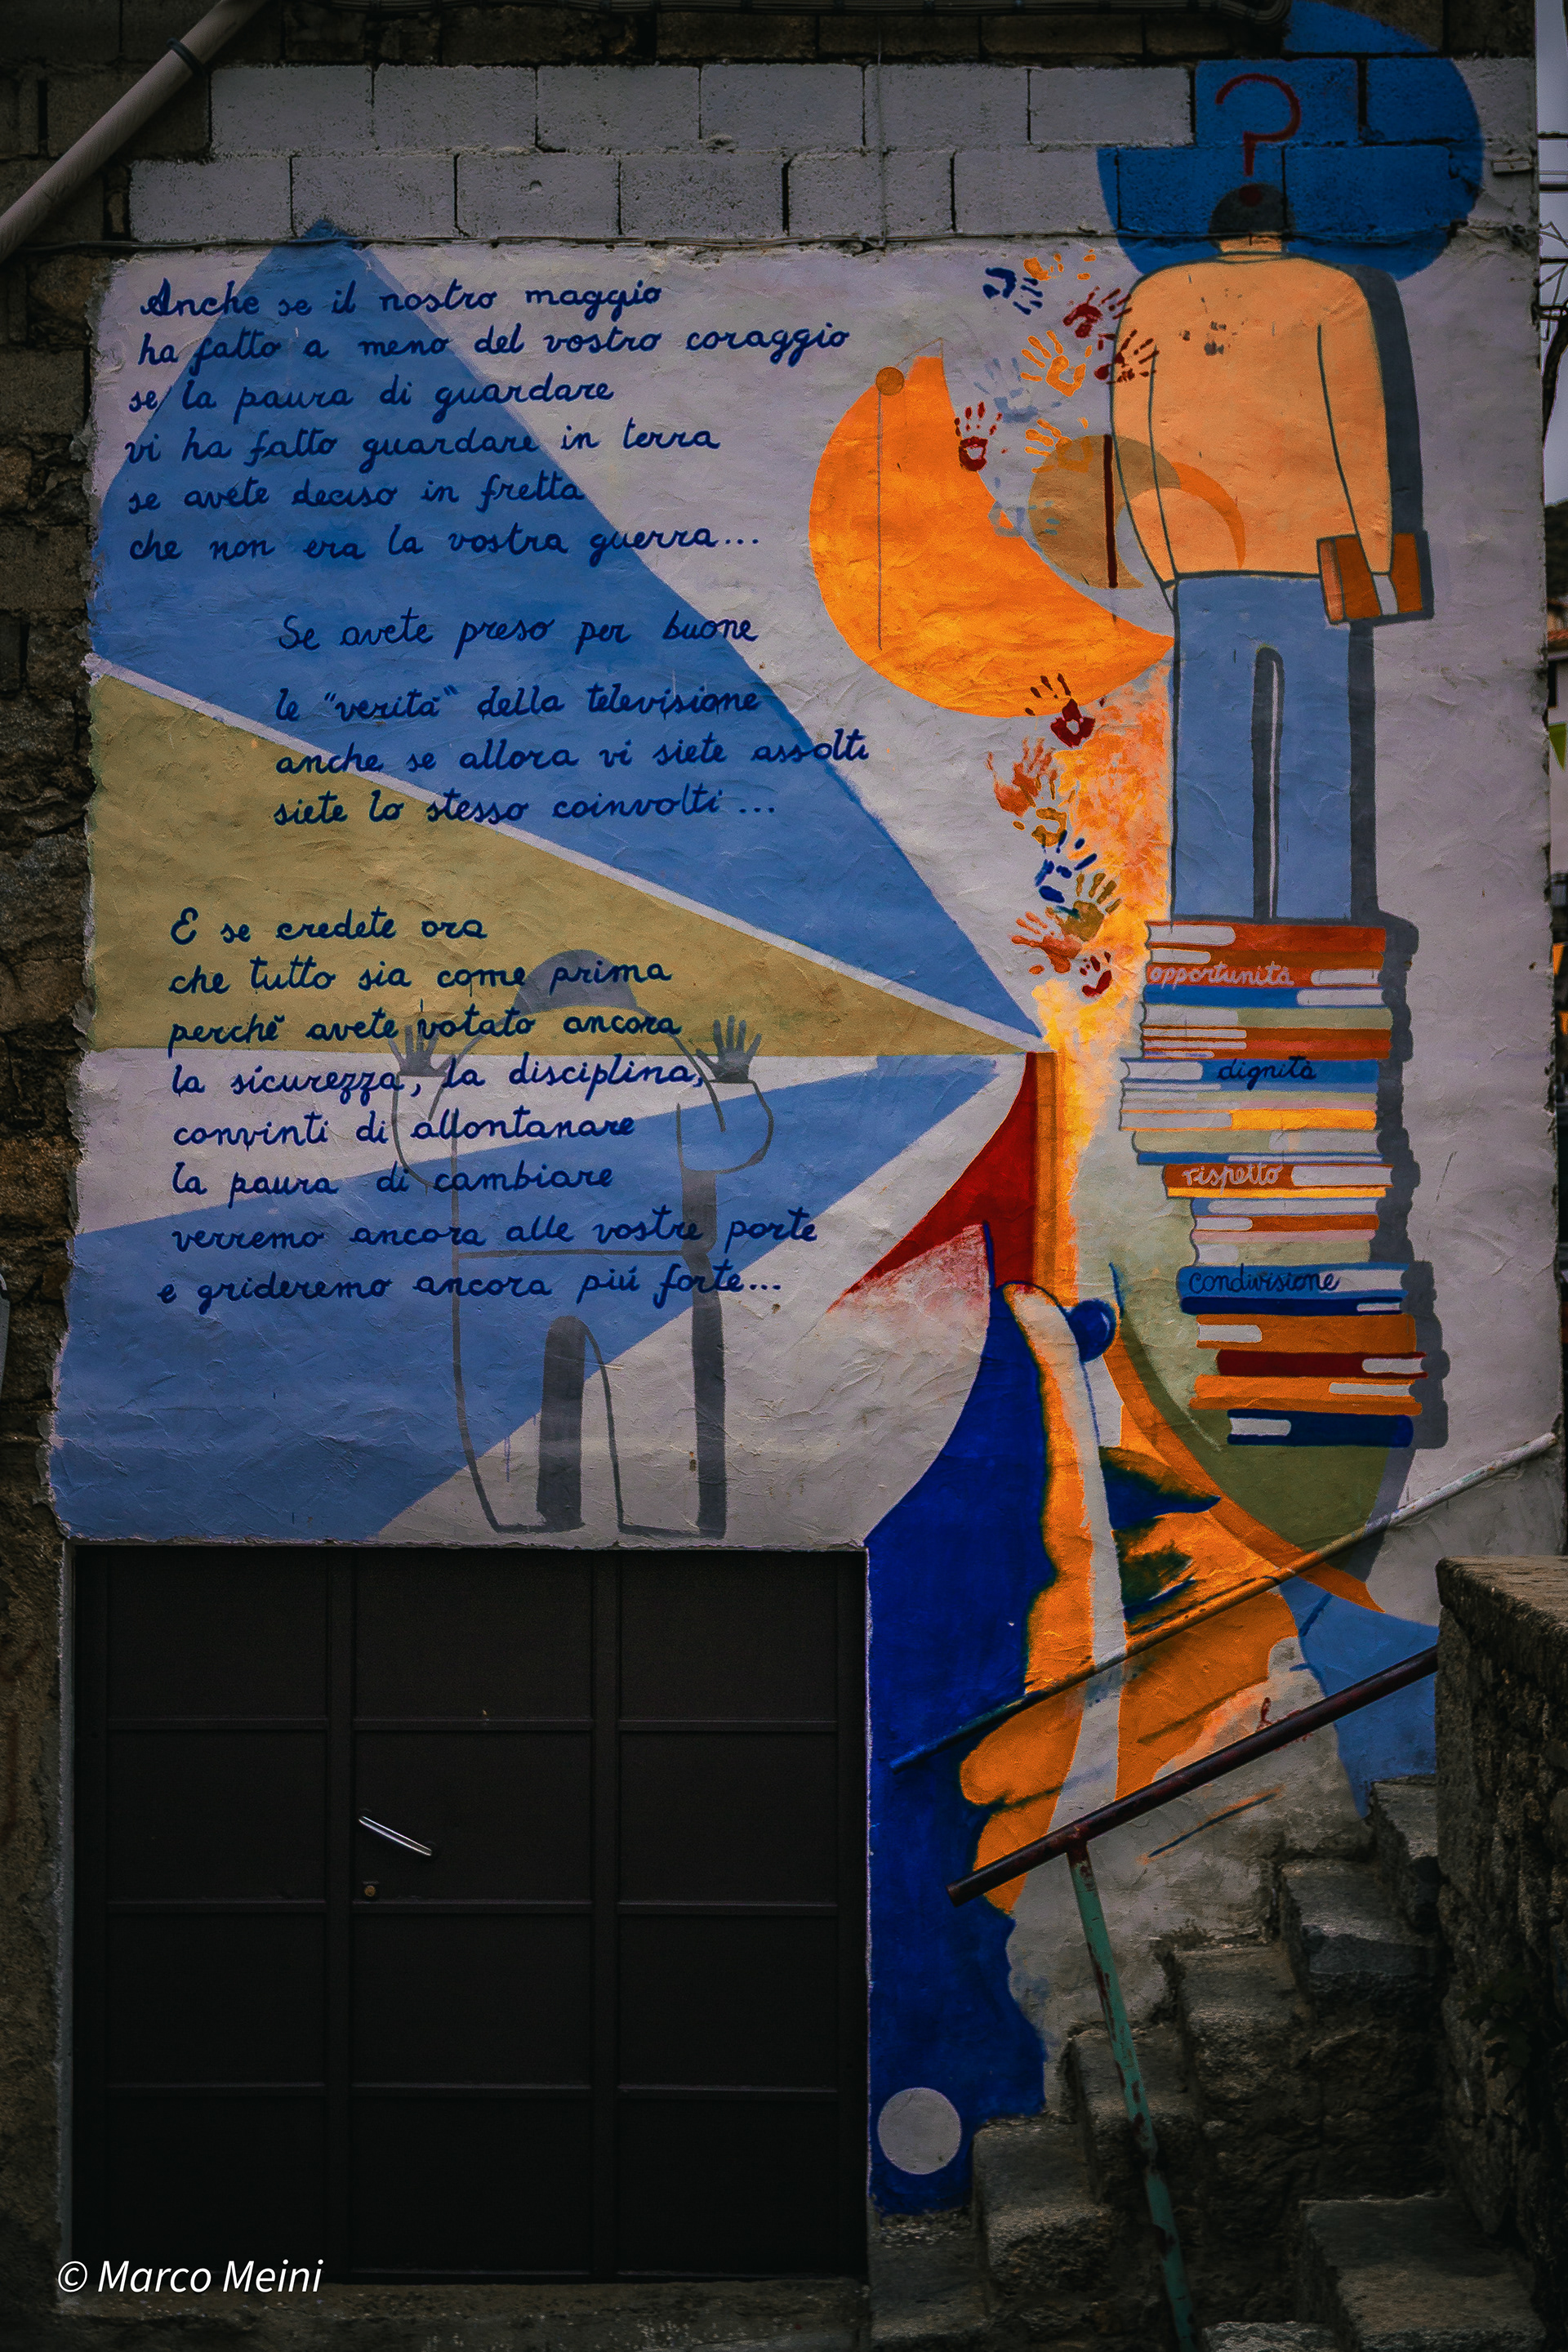 ?
Anche se il nostro maggio
ha fatto a meno del vostro coraggio
se la paura di guardare
vi ha fatto guardare in terra
se avete deciso in fretta
che non era la vostra guerra...
Se avete preso per buone
le "verità" della televisione
anche se allora vi siete assolti
siete lo stesso coinvolti ...
E se credete ora
che tutto sia come prima
perchè avete votato ancora
la sicurezza, la disciplina,
convinti di allontanare
la paura di cambiare
verremo ancora alle vostre porte
e grideremo ancora più forte...
opportunità
dignità
rispetto
condivisione
© Marco Meini